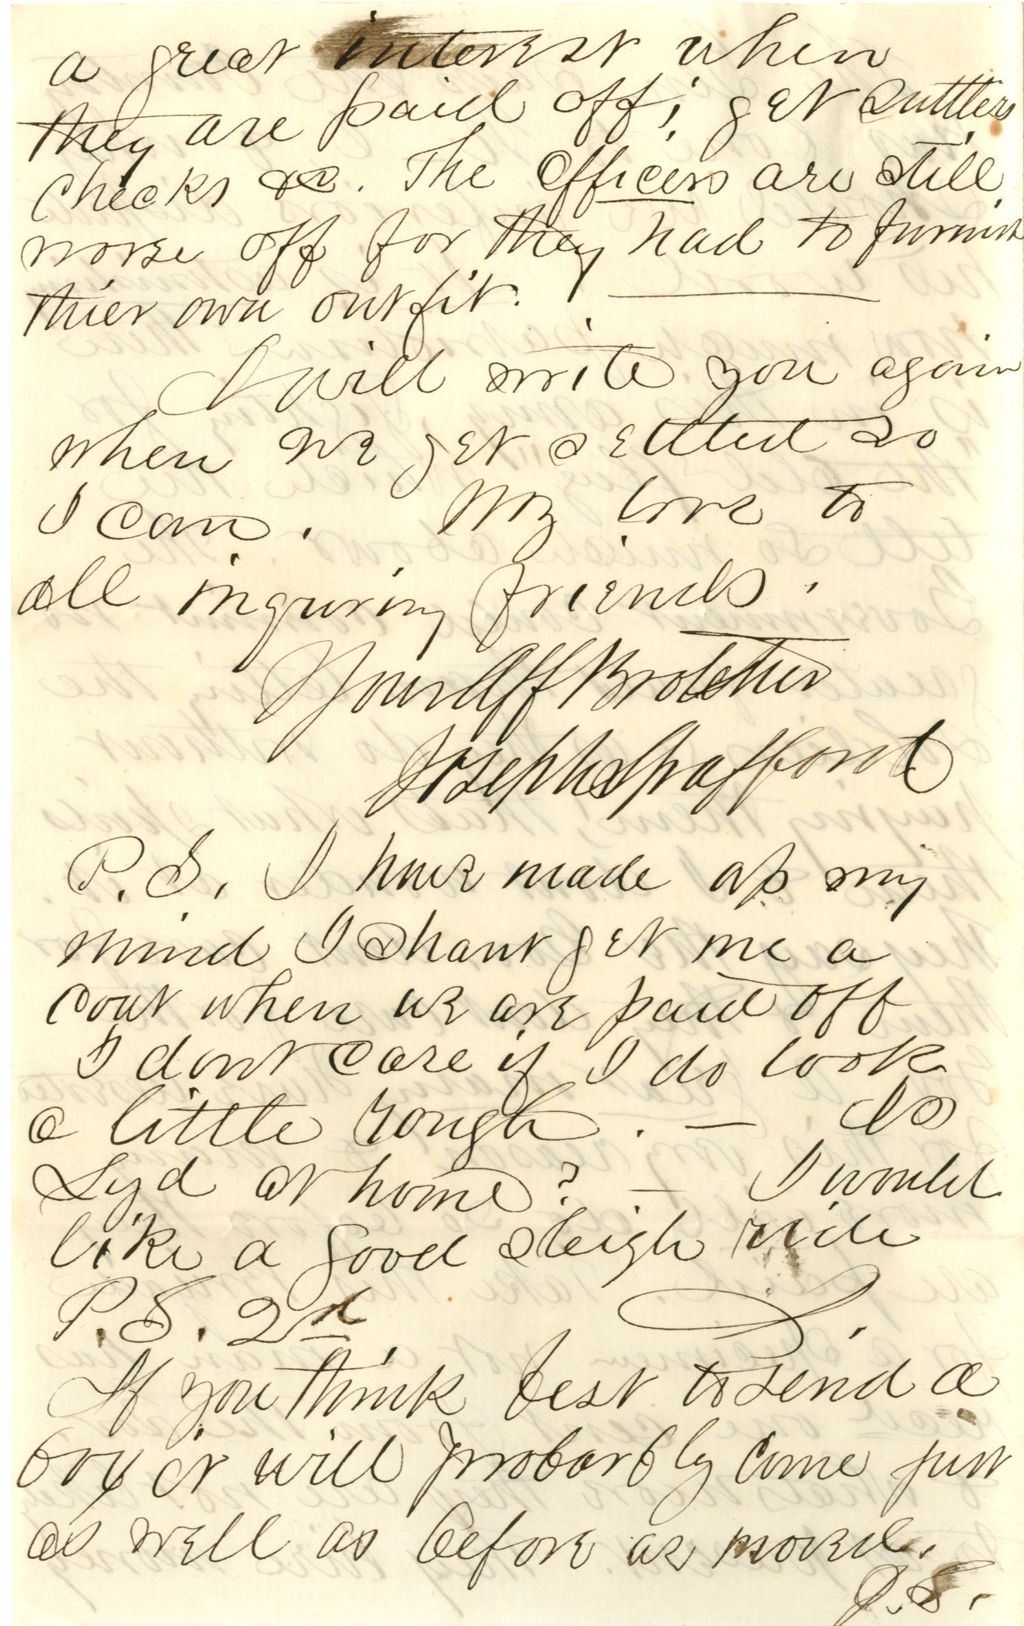 a great interest when
they are paid off; get suttlers
checks &c. The Officers are still
worse off for they had to furnish
thier own outfit.
I will write you again
when we get settled so
I can. My love to
all inquring friends.
Your Aff Brother
Joseph Spafford
P.S. I have made up my
mind I shant get me a
coat when we are paid off
I dont care if I do look
a little rough. — Is
Syd at home? — I would
like a good sleigh ride
J.
P.S. 2d
If you think best to send a
box it will probarbly come just
as well as before we moved.
J.S.